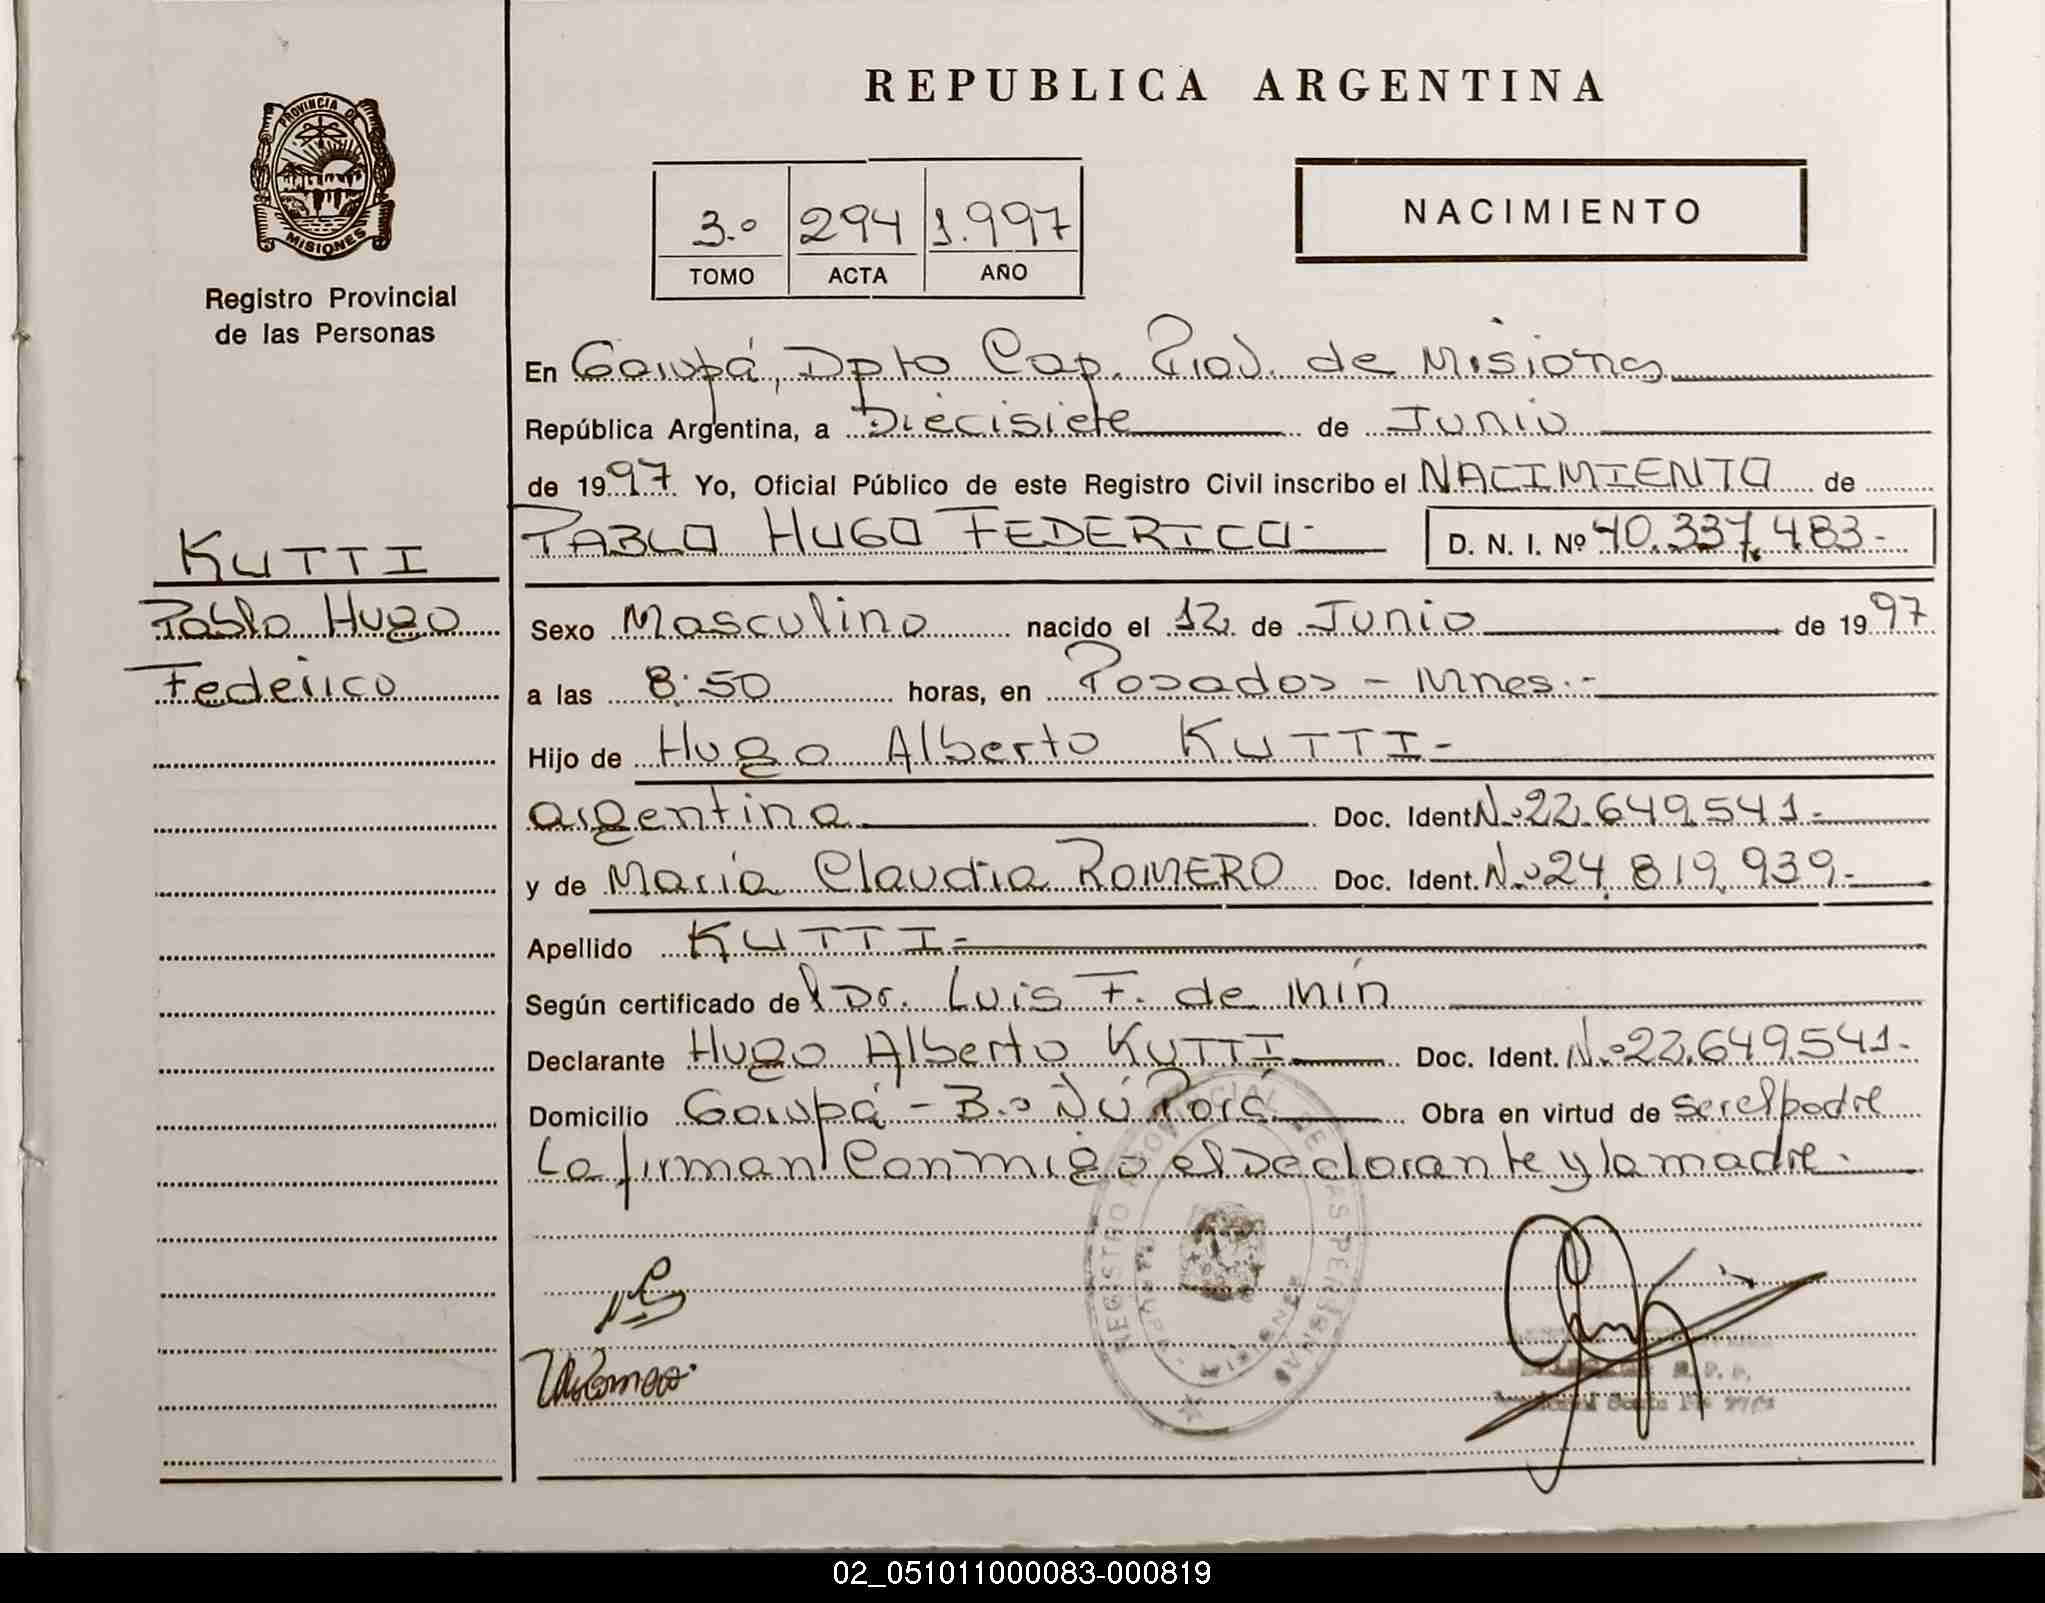 REPUBLICA ARGENTINA
PROVINCIA DE
MISIONES
Registro Provincial
de las Personas
3.º 294 1.997
TOMO ACTA AÑO
NACIMIENTO
En Garupá, Dpto Cap. Prov. de Misiones
República Argentina, a Diecisiete de Junio
de 1997 Yo, Oficial Público de este Registro Civil inscribo el NACIMIENTO de
PABLO HUGO FEDERICO- D. N. I. Nº 40.337.483-
KUTTI
Pablo Hugo
Federico
Sexo Masculino nacido el 12 de Junio de 1997
a las 8:50 horas, en Posadas - Mnes.-
Hijo de Hugo Alberto KUTTI-
argentina Doc. Ident. Nº 22.649.541-
y de María Claudia ROMERO Doc. Ident. Nº 24.819.939-
Apellido KUTTI-
Según certificado del Dr. Luis F. de Mín
Declarante Hugo Alberto KUTTI Doc. Ident. Nº 22.649.541-
Domicilio Garupá - B.º Ñú Porá Obra en virtud de ser el padre
La firman Conmigo el Declarante y la madre.
REGISTRO PROVINCIAL DE LAS PERSONAS
02_051011000083-000819